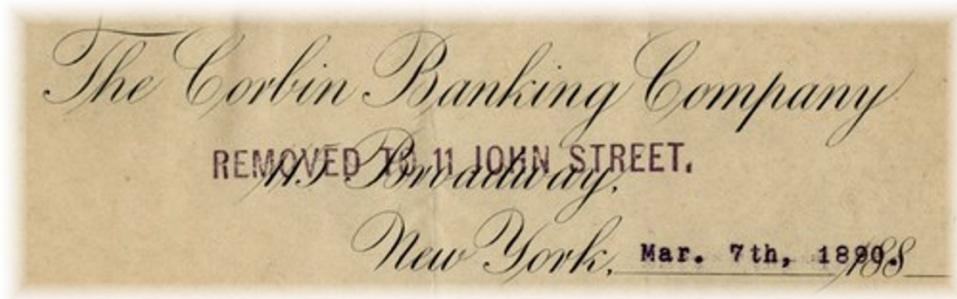 The Corbin Banking Company
REMOVED TO 11 JOHN STREET.
115 Broadway,
New York, Mar. 7th, 1890. 188